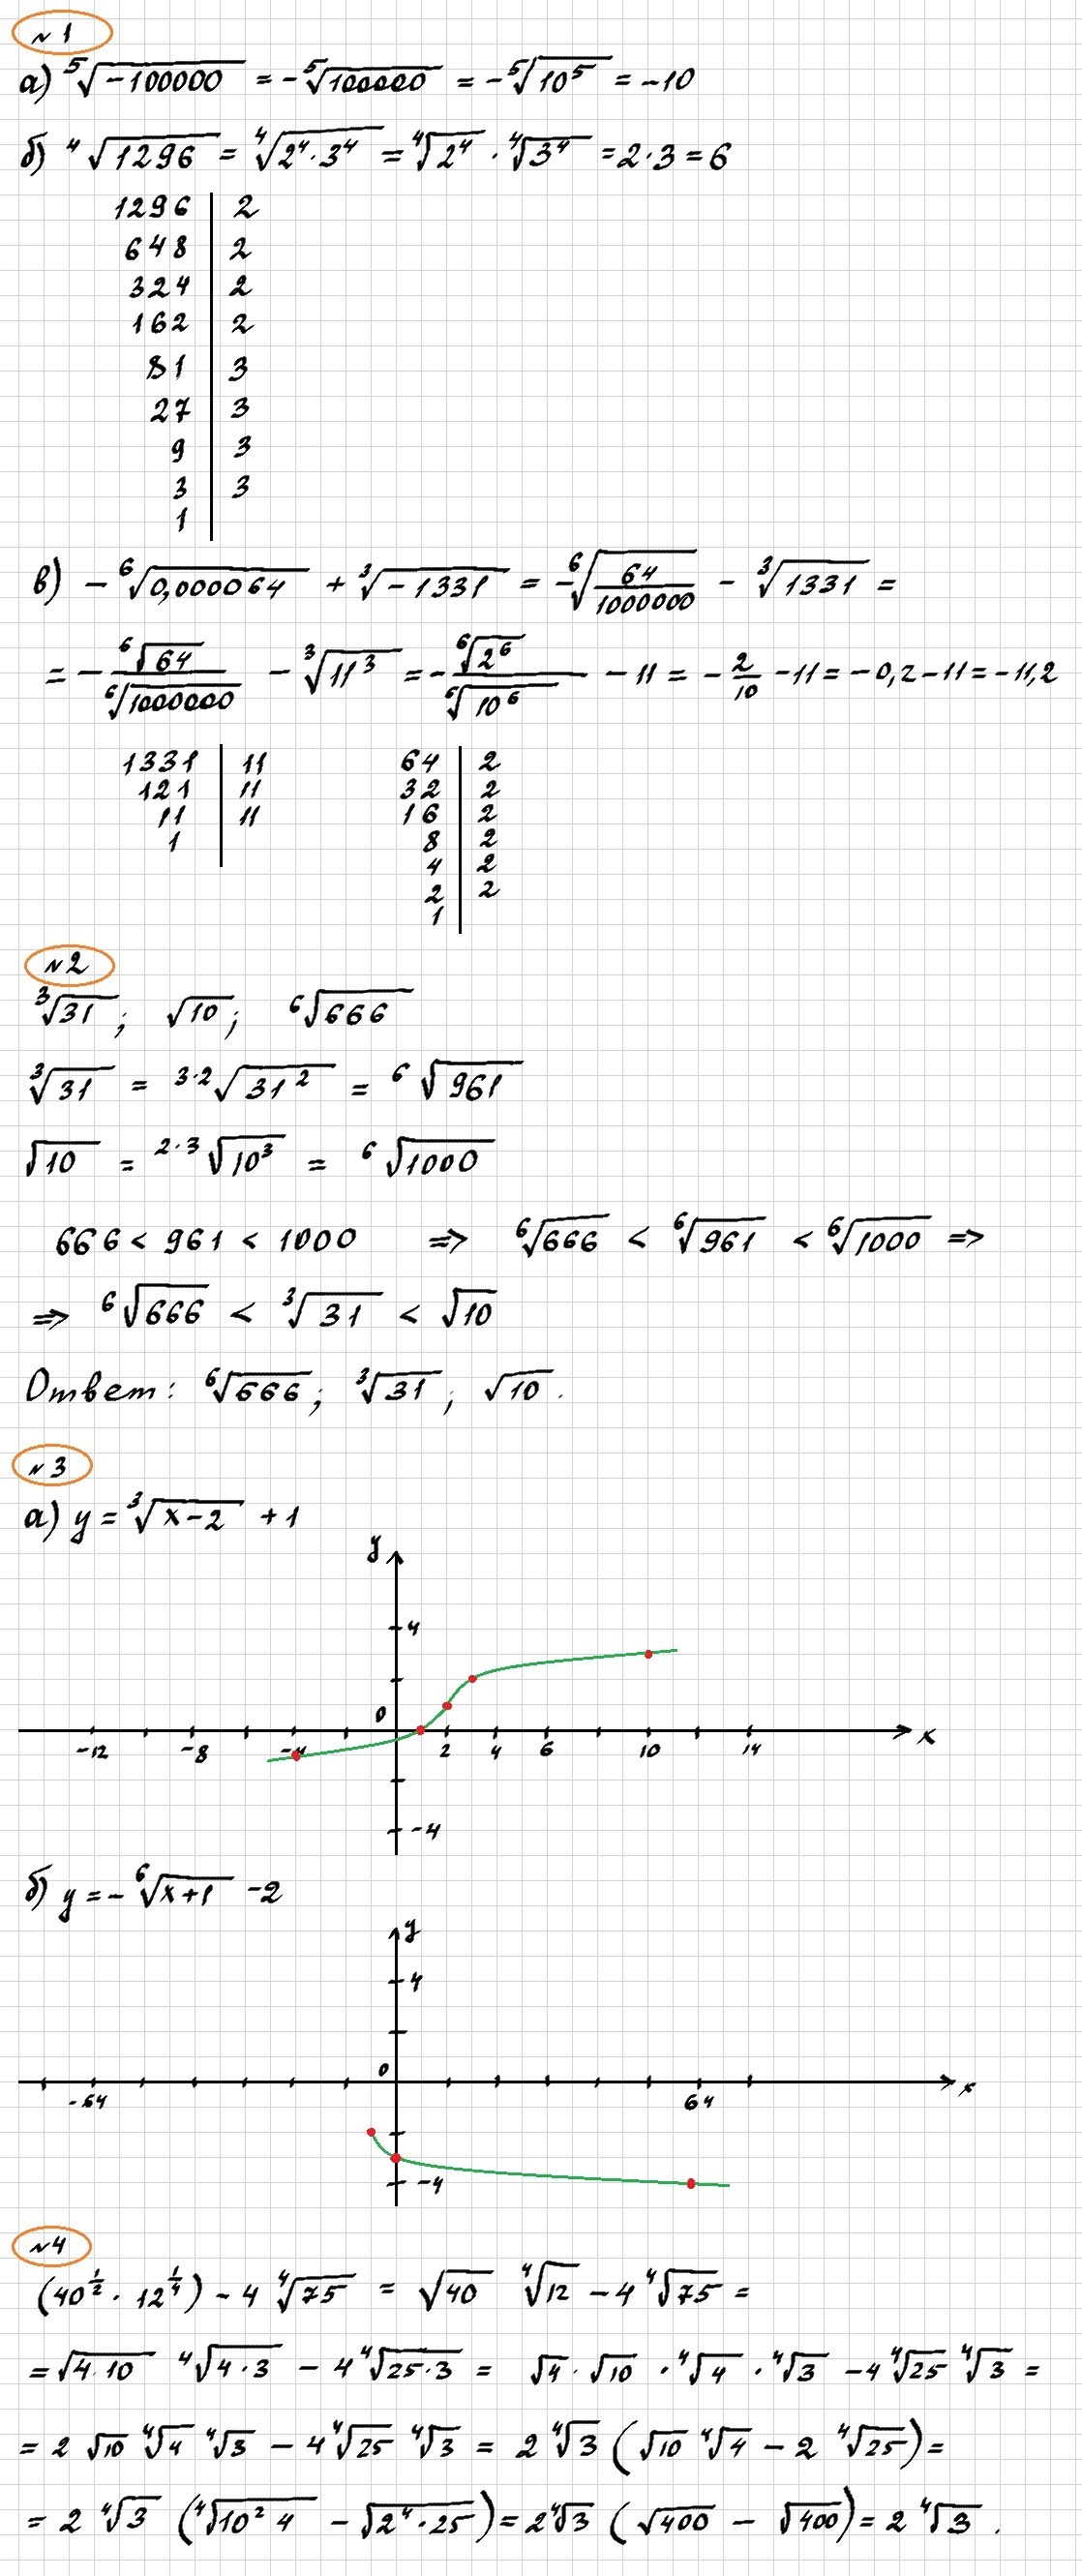 №1
а) ⁵√(-100000) = -⁵√(100000) = -⁵√(10⁵) = -10
б) ⁴√(1296) = ⁴√(2⁴·3⁴) = ⁴√(2⁴) · ⁴√(3⁴) = 2·3 = 6
1296 | 2
648 | 2
324 | 2
162 | 2
81 | 3
27 | 3
9 | 3
3 | 3
1 |
в) -⁶√(0,000064) + ³√(-1331) = -⁶√(64/1000000) - ³√(1331) =
= -⁶√(64)/⁶√(1000000) - ³√(11³) = -⁶√(2⁶)/⁶√(10⁶) - 11 = -2/10 - 11 = -0,2 - 11 = -11,2
1331 | 11 64 | 2
121 | 11 32 | 2
11 | 11 16 | 2
1 | 8 | 2
4 | 2
2 | 2
1 |
№2
³√31; √10; ⁶√666
³√31 = ³·²√(31²) = ⁶√961
√10 = ²·³√(10³) = ⁶√1000
666 < 961 < 1000 ⇒ ⁶√666 < ⁶√961 < ⁶√1000 ⇒
⇒ ⁶√666 < ³√31 < √10
Ответ: ⁶√666; ³√31; √10.
№3
а) y = ³√(x-2) + 1
y
4
0
x
-12 -8 -4 2 4 6 10 14
-4
б) y = -⁶√(x+1) -2
y
4
0
x
-64 64
-4
№4
(40^(1/2) · 12^(1/4)) - 4 ⁴√75 = √40 ⁴√12 - 4 ⁴√75 =
= √(4·10) ⁴√(4·3) - 4 ⁴√(25·3) = √4 · √10 · ⁴√4 · ⁴√3 - 4 ⁴√25 ⁴√3 =
= 2 √10 ⁴√4 ⁴√3 - 4 ⁴√25 ⁴√3 = 2 ⁴√3 (√10 ⁴√4 - 2 ⁴√25) =
= 2 ⁴√3 (⁴√(10² 4) - √(2⁴·25)) = 2 ⁴√3 (√400 - √400) = 2 ⁴√3.